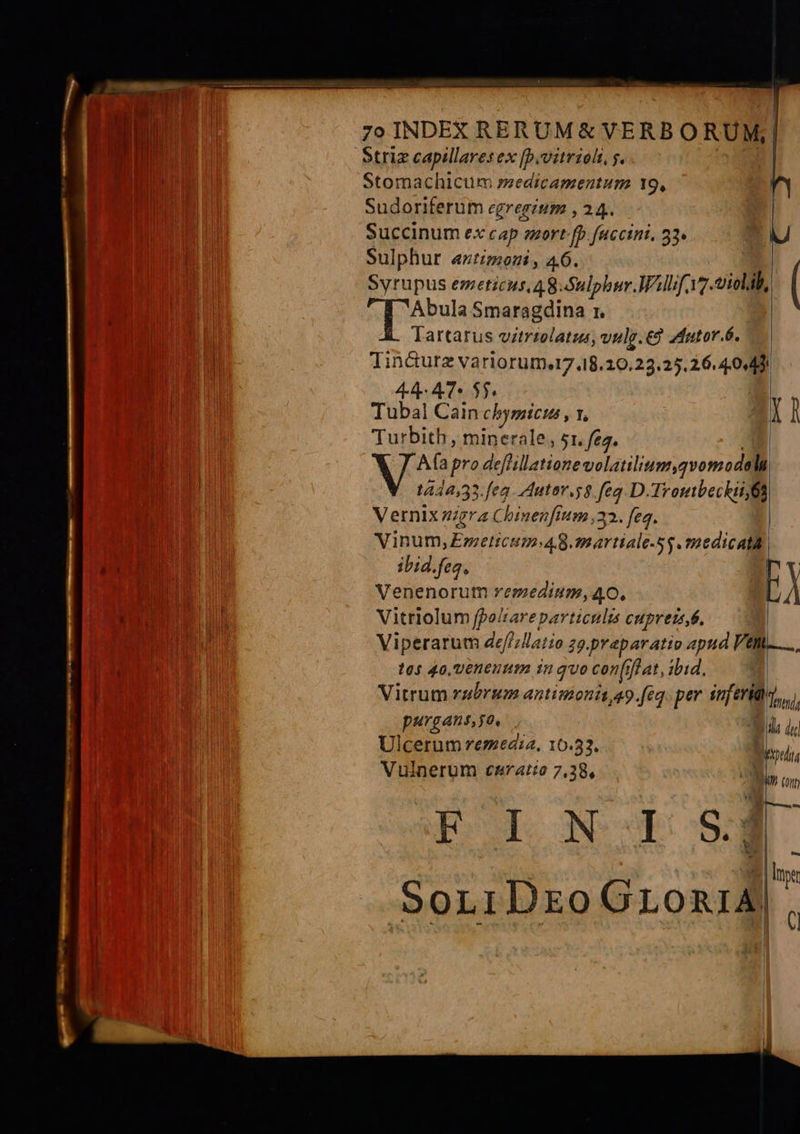 70 INDEX RERUM & VERBORUM,
Striæ capillares ex ſp. vitrioli, 5.
Stomachicum medicamentum 19,
Sudoriferum egregium, 24.
Succinum ex cap mort ſp ſuccini. 33.
Sulphur antimoni, 46.
Syrupus emeticus, 48. Sulphur. Willif. 17. violib,
TAbula Smaragdina 1.
Tartarus vitriolatus, vulg. & Autor. 6.
Tincturæ variorum. 17. 18. 20. 23. 25. 26. 40. 43
44. 47. 55.
Tubal Cain chymicus, 1,
Turbith, minerale, 51. ſeq.
VAſa pro deſtillatione volatilium, qvomodo lu
tāda, 33. ſeq. Autor. 58. ſeq. D. Troutbeckii, 63
Vernix nigra Chinenſium, 32. ſeq.
Vinum, Emeticum. 48. martiale. 55. medicata
ibid. ſeq.
Venenorum remedium, 40.
Vitriolum ſpoliare particulis cupreis, 6.
Viperarum deſtillatio 39. præparatio apud Vene
tos 40, venenum in qvo conſiſtat, ibid.
Vitrum rubrum antimonii, 49. ſeq. per inferiora
purgans, 50.
Ulcerum remedia, 10. 33.
Vulnerum curatio 7. 38.
FINIS.
SOLI DEO GLORIA